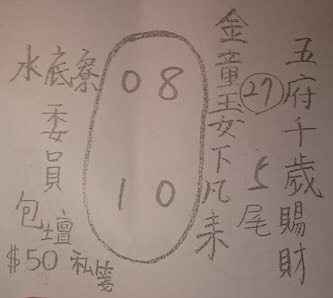 五府千歲賜財
27
5尾
金童玉女下凡来
08
10
水底寮
委員
包壇
$50 私箋